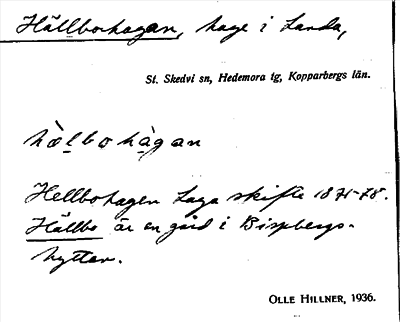 Hällbohagan, hage i Landa,
St. Skedvi sn, Hedemora tg, Kopparbergs län.
hæ̀lbohàgan
Hellbohagen Laga skifte 1871-78.
Hällbo är en gård i Bispbergs-
hyttan.
OLLE HILLNER, 1936.